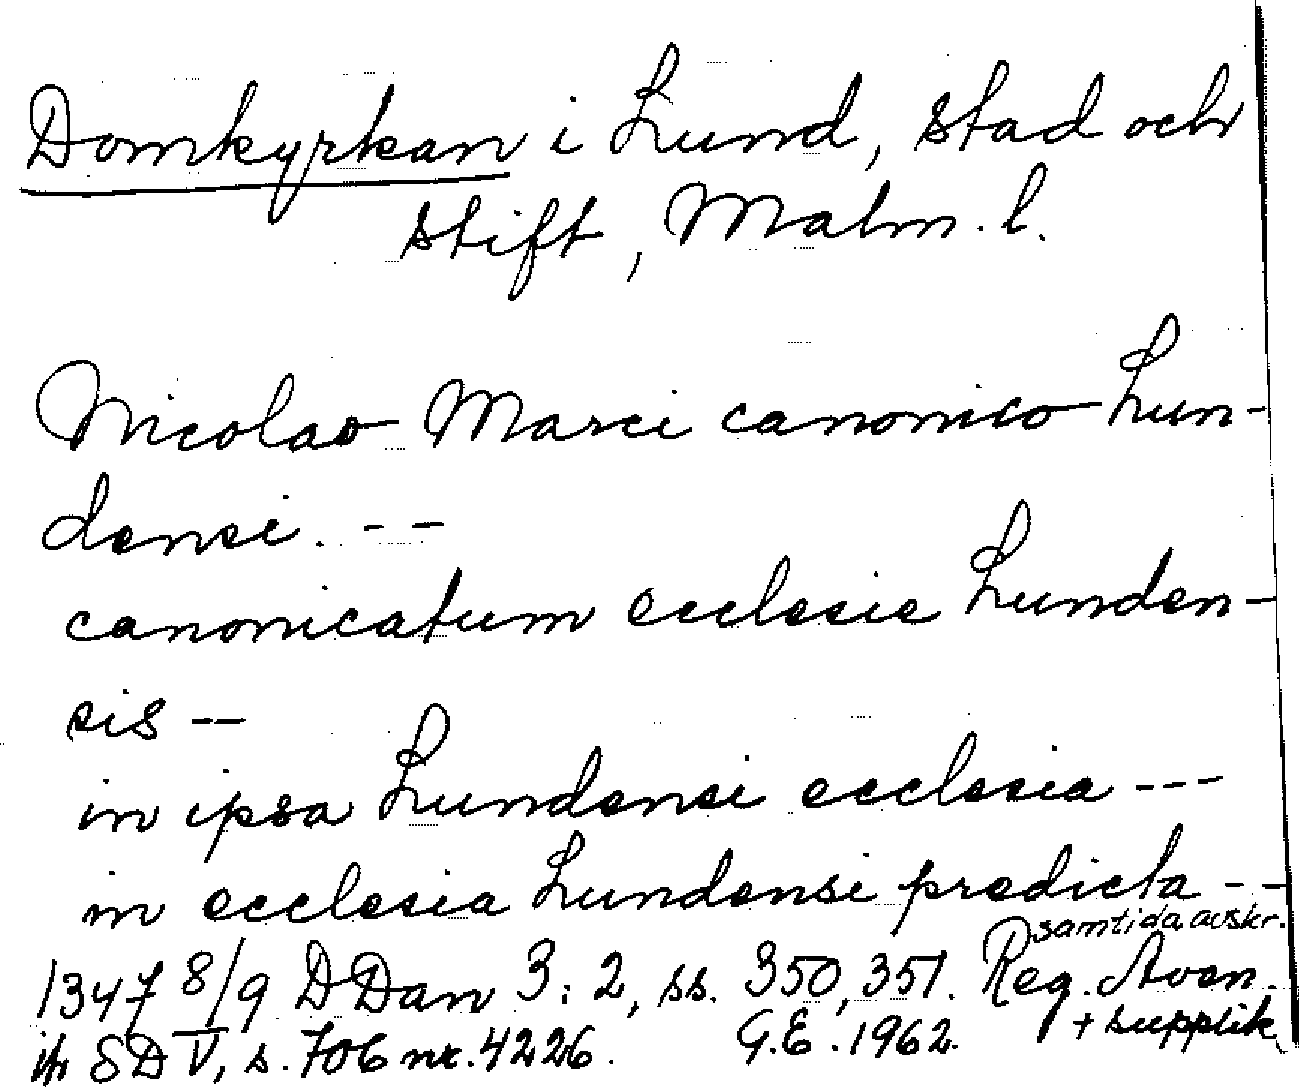 Domkyrkan i Lund, stad och
stift, Malm. l.
Nicolao Marci canonico Lun-
densi. --
canonicatum ecclesie Lunden-
sis --
in ipsa Lundensi ecclesia ---
in ecclesia Lundensi predicta --
samtida avskr.
1347 8/9 DDan 3:2, ss. 350, 351. Reg. Aven.
+ supplik
jfr SD V, s. 706 nr. 4226. G.E. 1962.